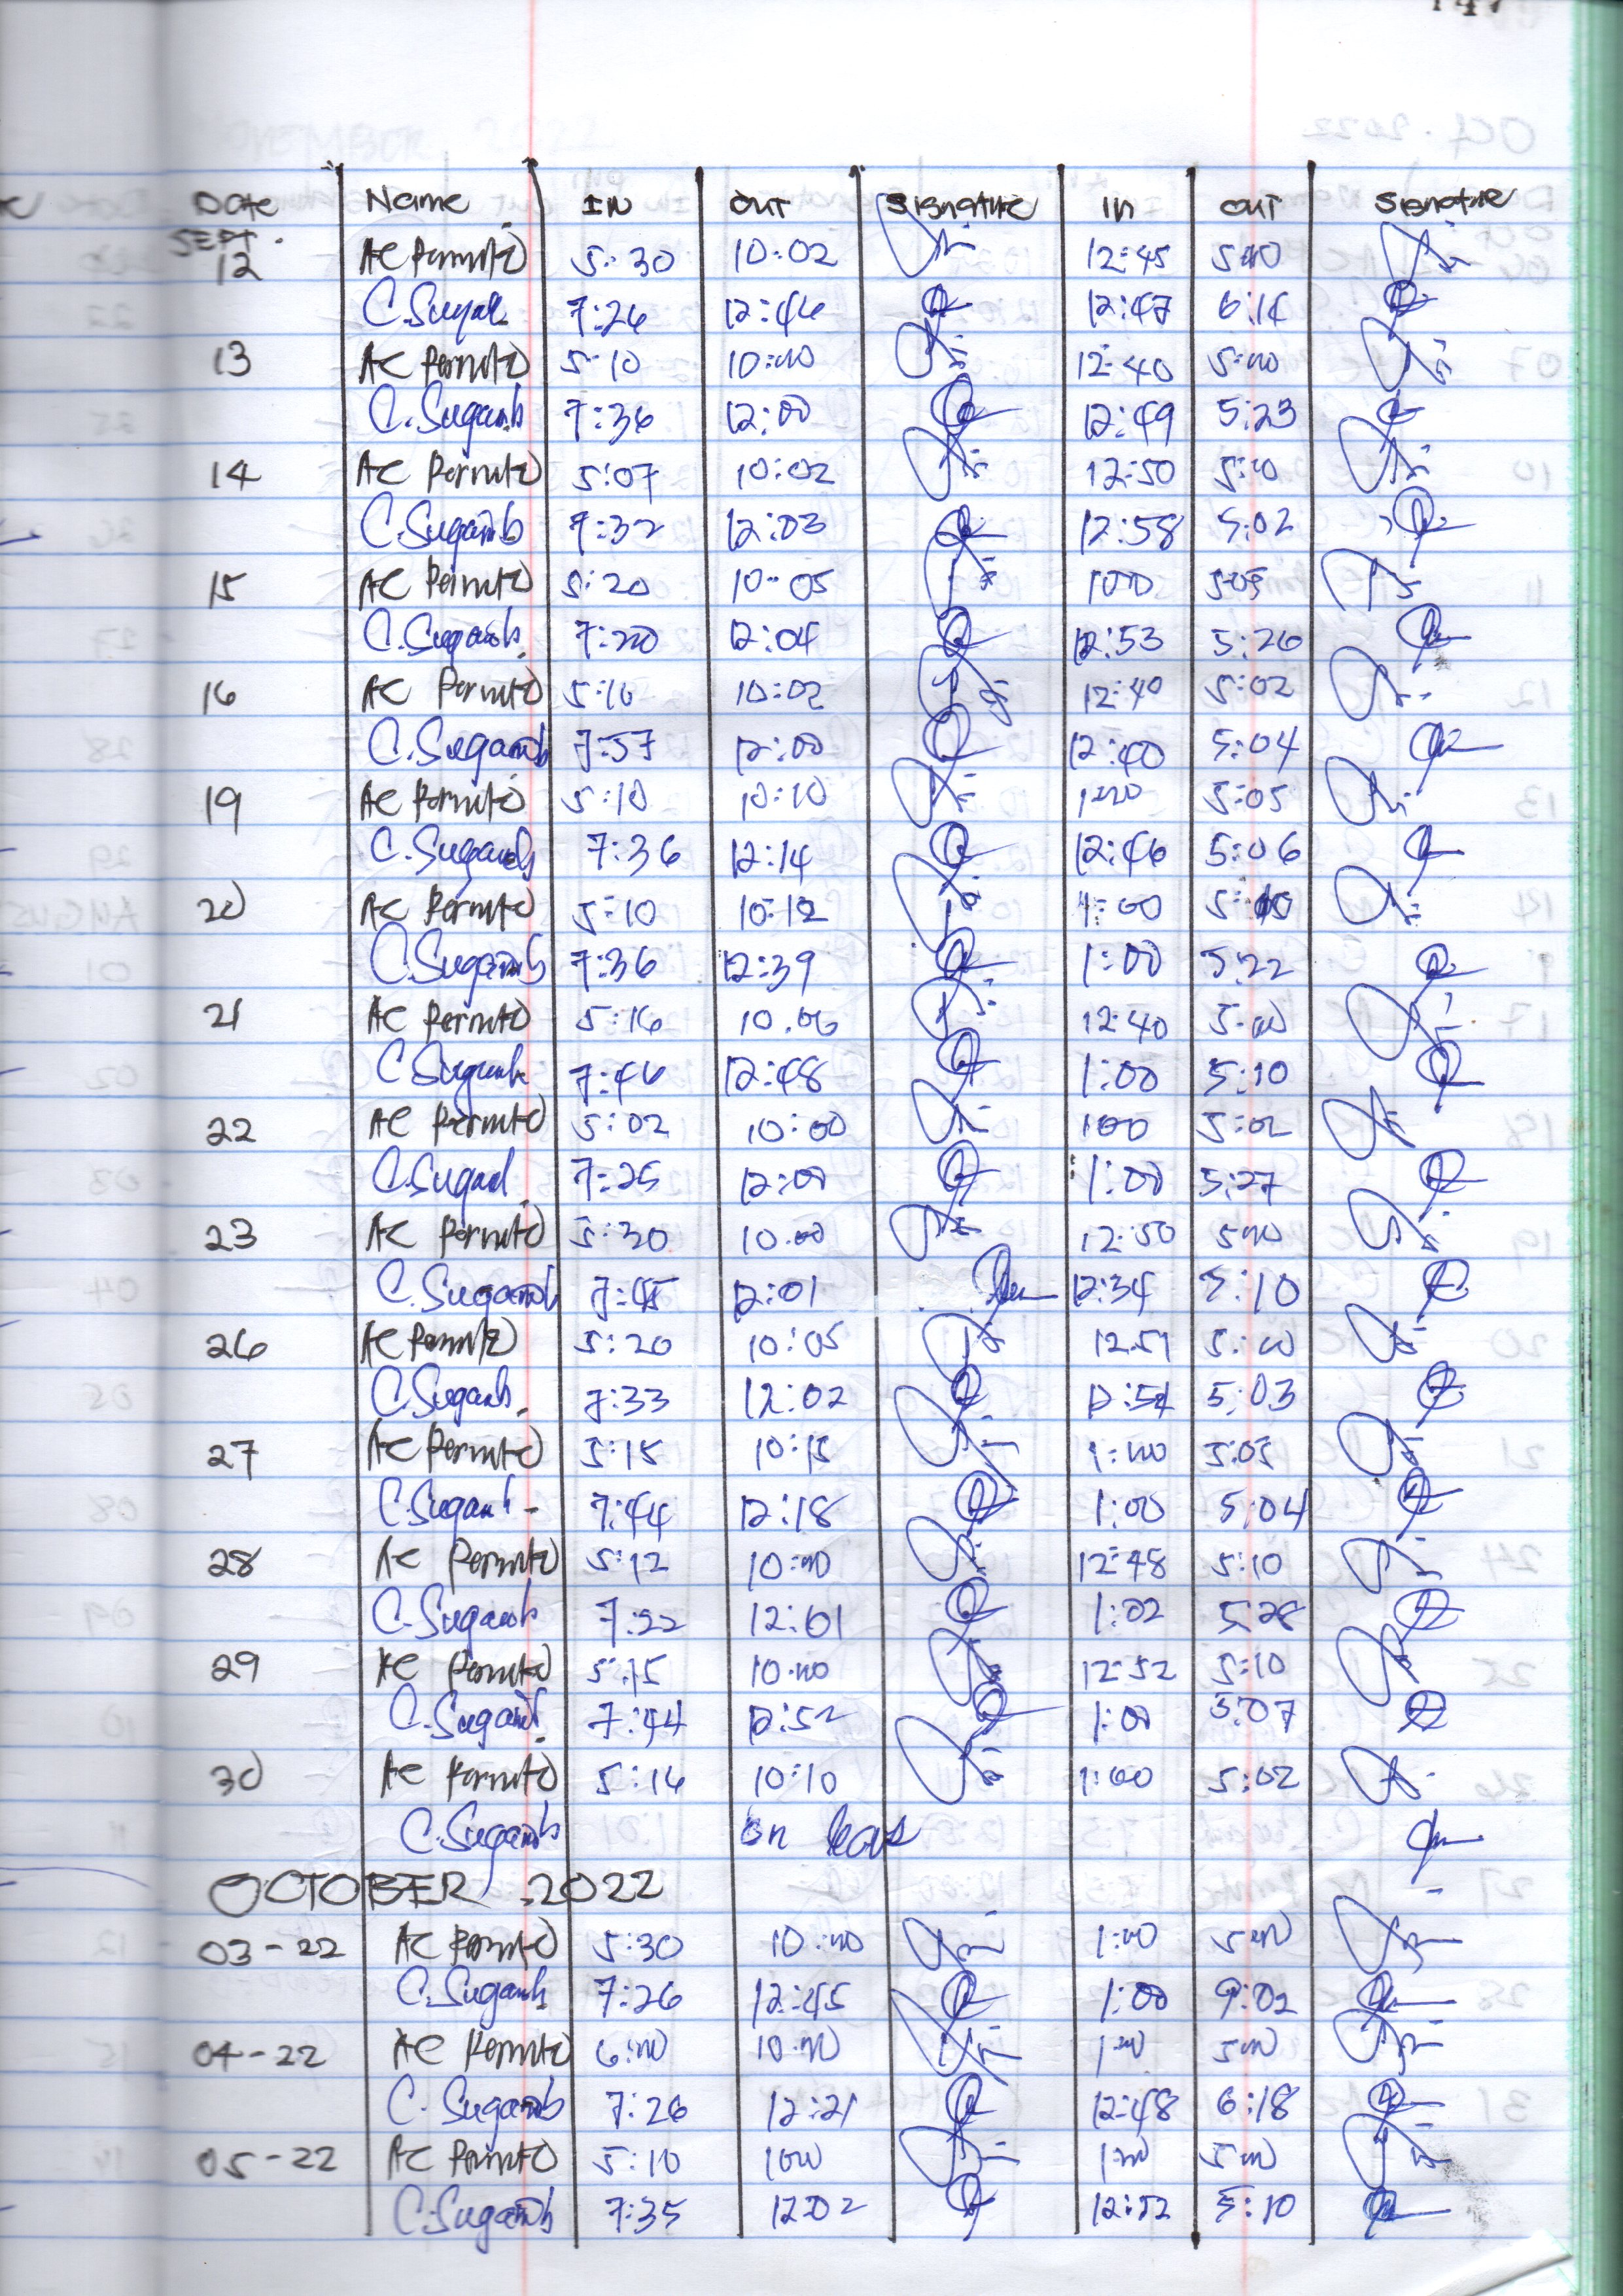 DATE Name IN OUT Signature IN OUT Signature
SEPT.
12 AC Permito 5:30 10:02 12:45 5:00
C. Sugab 7:26 12:46 12:47 6:14
13 AC Permito 5:10 10:00 12:40 5:00
C. Suganob 7:36 12:00 12:49 5:23
14 AC Permito 5:07 10:02 12:50 5:10
C. Suganob 7:32 12:03 12:58 5:02
15 AC Permito 5:20 10:05 1:00 5:05
C. Suganob 7:20 12:04 12:53 5:26
16 AC Permito 5:10 10:02 12:40 5:02
C. Suganob 7:57 12:00 12:40 5:04
19 AC Permito 5:10 10:10 1:00 5:05
C. Suganob 7:36 12:14 12:46 5:06
20 AC Permito 5:10 10:12 1:00 5:10
C. Suganob 7:36 12:39 1:00 5:22
21 AC Permito 5:16 10.06 12:40 5:00
C. Suganob 7:46 12:48 1:00 5:10
22 AC Permito 5:02 10:00 1:00 5:02
C. Sugad 7:25 12:00 1:00 5:27
23 AC Permito 5:30 10.00 12:50 5:00
C. Suganob 7:45 12:01 12:34 5:10
26 AC Permito 5:20 10:05 12.51 5:00
C. Suganob 7:33 12:02 12:54 5:03
27 AC Permito 5:15 10:15 1:00 5:05
C. Suganob 7:44 12:18 1:00 5:04
28 AC Permito 5:12 10:00 12:48 5:10
C. Suganob 7:22 12:01 1:02 5:28
29 AC Permito 5:15 10:00 12:52 5:10
C. Suganob 7:44 12:52 1:00 5:07
30 AC Permito 5:16 10:10 1:00 5:02
C. Suganob on leave
OCTOBER 2022
03-22 AC Permito 5:30 10:00 1:00 5:00
C. Suganob 7:26 12:45 1:00 9:02
04-22 AC Permito 6:00 10:00 1:00 5:00
C. Suganob 7:26 12:21 12:48 6:18
05-22 AC Permito 5:10 10:00 1:00 5:00
C. Suganob 7:35 12:02 12:52 5:10